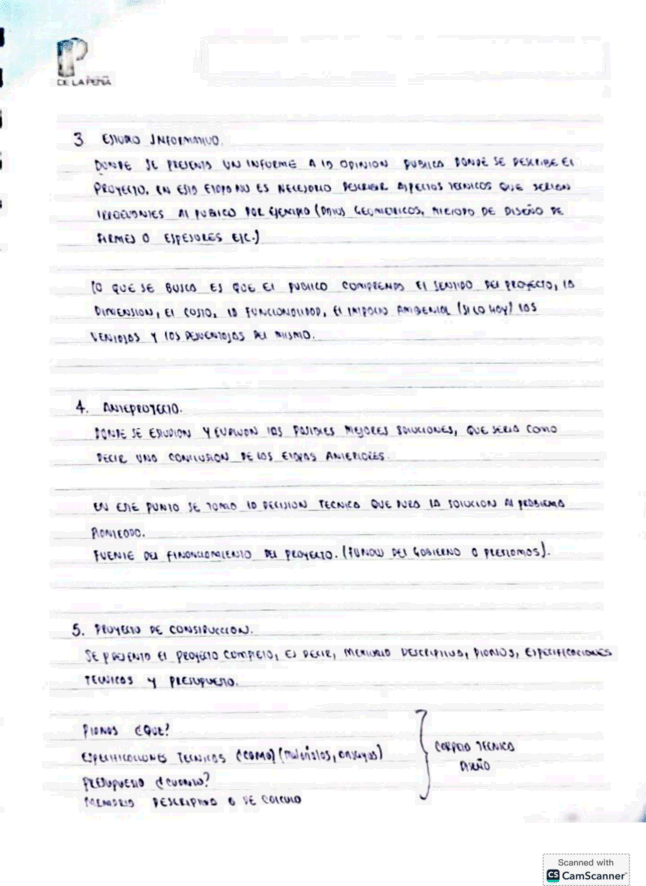 DE LA PEÑA
3 ESTUDIO INFORMATIVO.
DONDE SE PRESENTA UN INFORME A LA OPINION PUBLICA DONDE SE DESCRIBE EL
PROYECTO, EN ESTA ETAPA NO ES NECESARIO DESCRIBIR ASPECTOS TECNICOS QUE SERIAN
IRRELEVANTES AL PUBLICO POR EJEMPLO (DATOS GEOMETRICOS, METODO DE DISEÑO DE
FIRMES O ESPESORES ETC.)
LO QUE SE BUSCA ES QUE EL PUBLICO COMPRENDA EL SENTIDO DEL PROYECTO, LA
DIMENSION, EL COSTO, LA FUNCIONALIDAD, EL IMPACTO AMBIENTAL (SI LO HAY) LAS
VENTAJAS Y LAS DESVENTAJAS DEL MISMO.
4. ANTEPROYECTO.
DONDE SE ESTUDIAN Y EVALUAN LAS POSIBLES MEJORES SOLUCIONES, QUE SERIA COMO
DECIR UNA CONCLUSION DE LAS ETAPAS ANTERIORES.
EN ESTE PUNTO SE TOMA LA DECISION TECNICA QUE DARA LA SOLUCION AL PROBLEMA
PLANTEADO.
FUENTE DEL FINANCIAMIENTO DEL PROYECTO. (FONDOS DEL GOBIERNO O PRESTAMOS).
5. PROYECTO DE CONSTRUCCION.
SE PRESENTA EL PROYECTO COMPLETO, ES DECIR, MEMORIA DESCRIPTIVA, PLANOS, ESPECIFICACIONES
TECNICAS Y PRESUPUESTO.
PLANOS ¿QUE?
ESPECIFICACIONES TECNICAS (COMO) (materiales, ensayos)
PRESUPUESTO ¿CUANTO?
MEMORIA DESCRIPTIVA O DE CALCULO
CARPETA TECNICA
DISEÑO
Scanned with
CS CamScanner